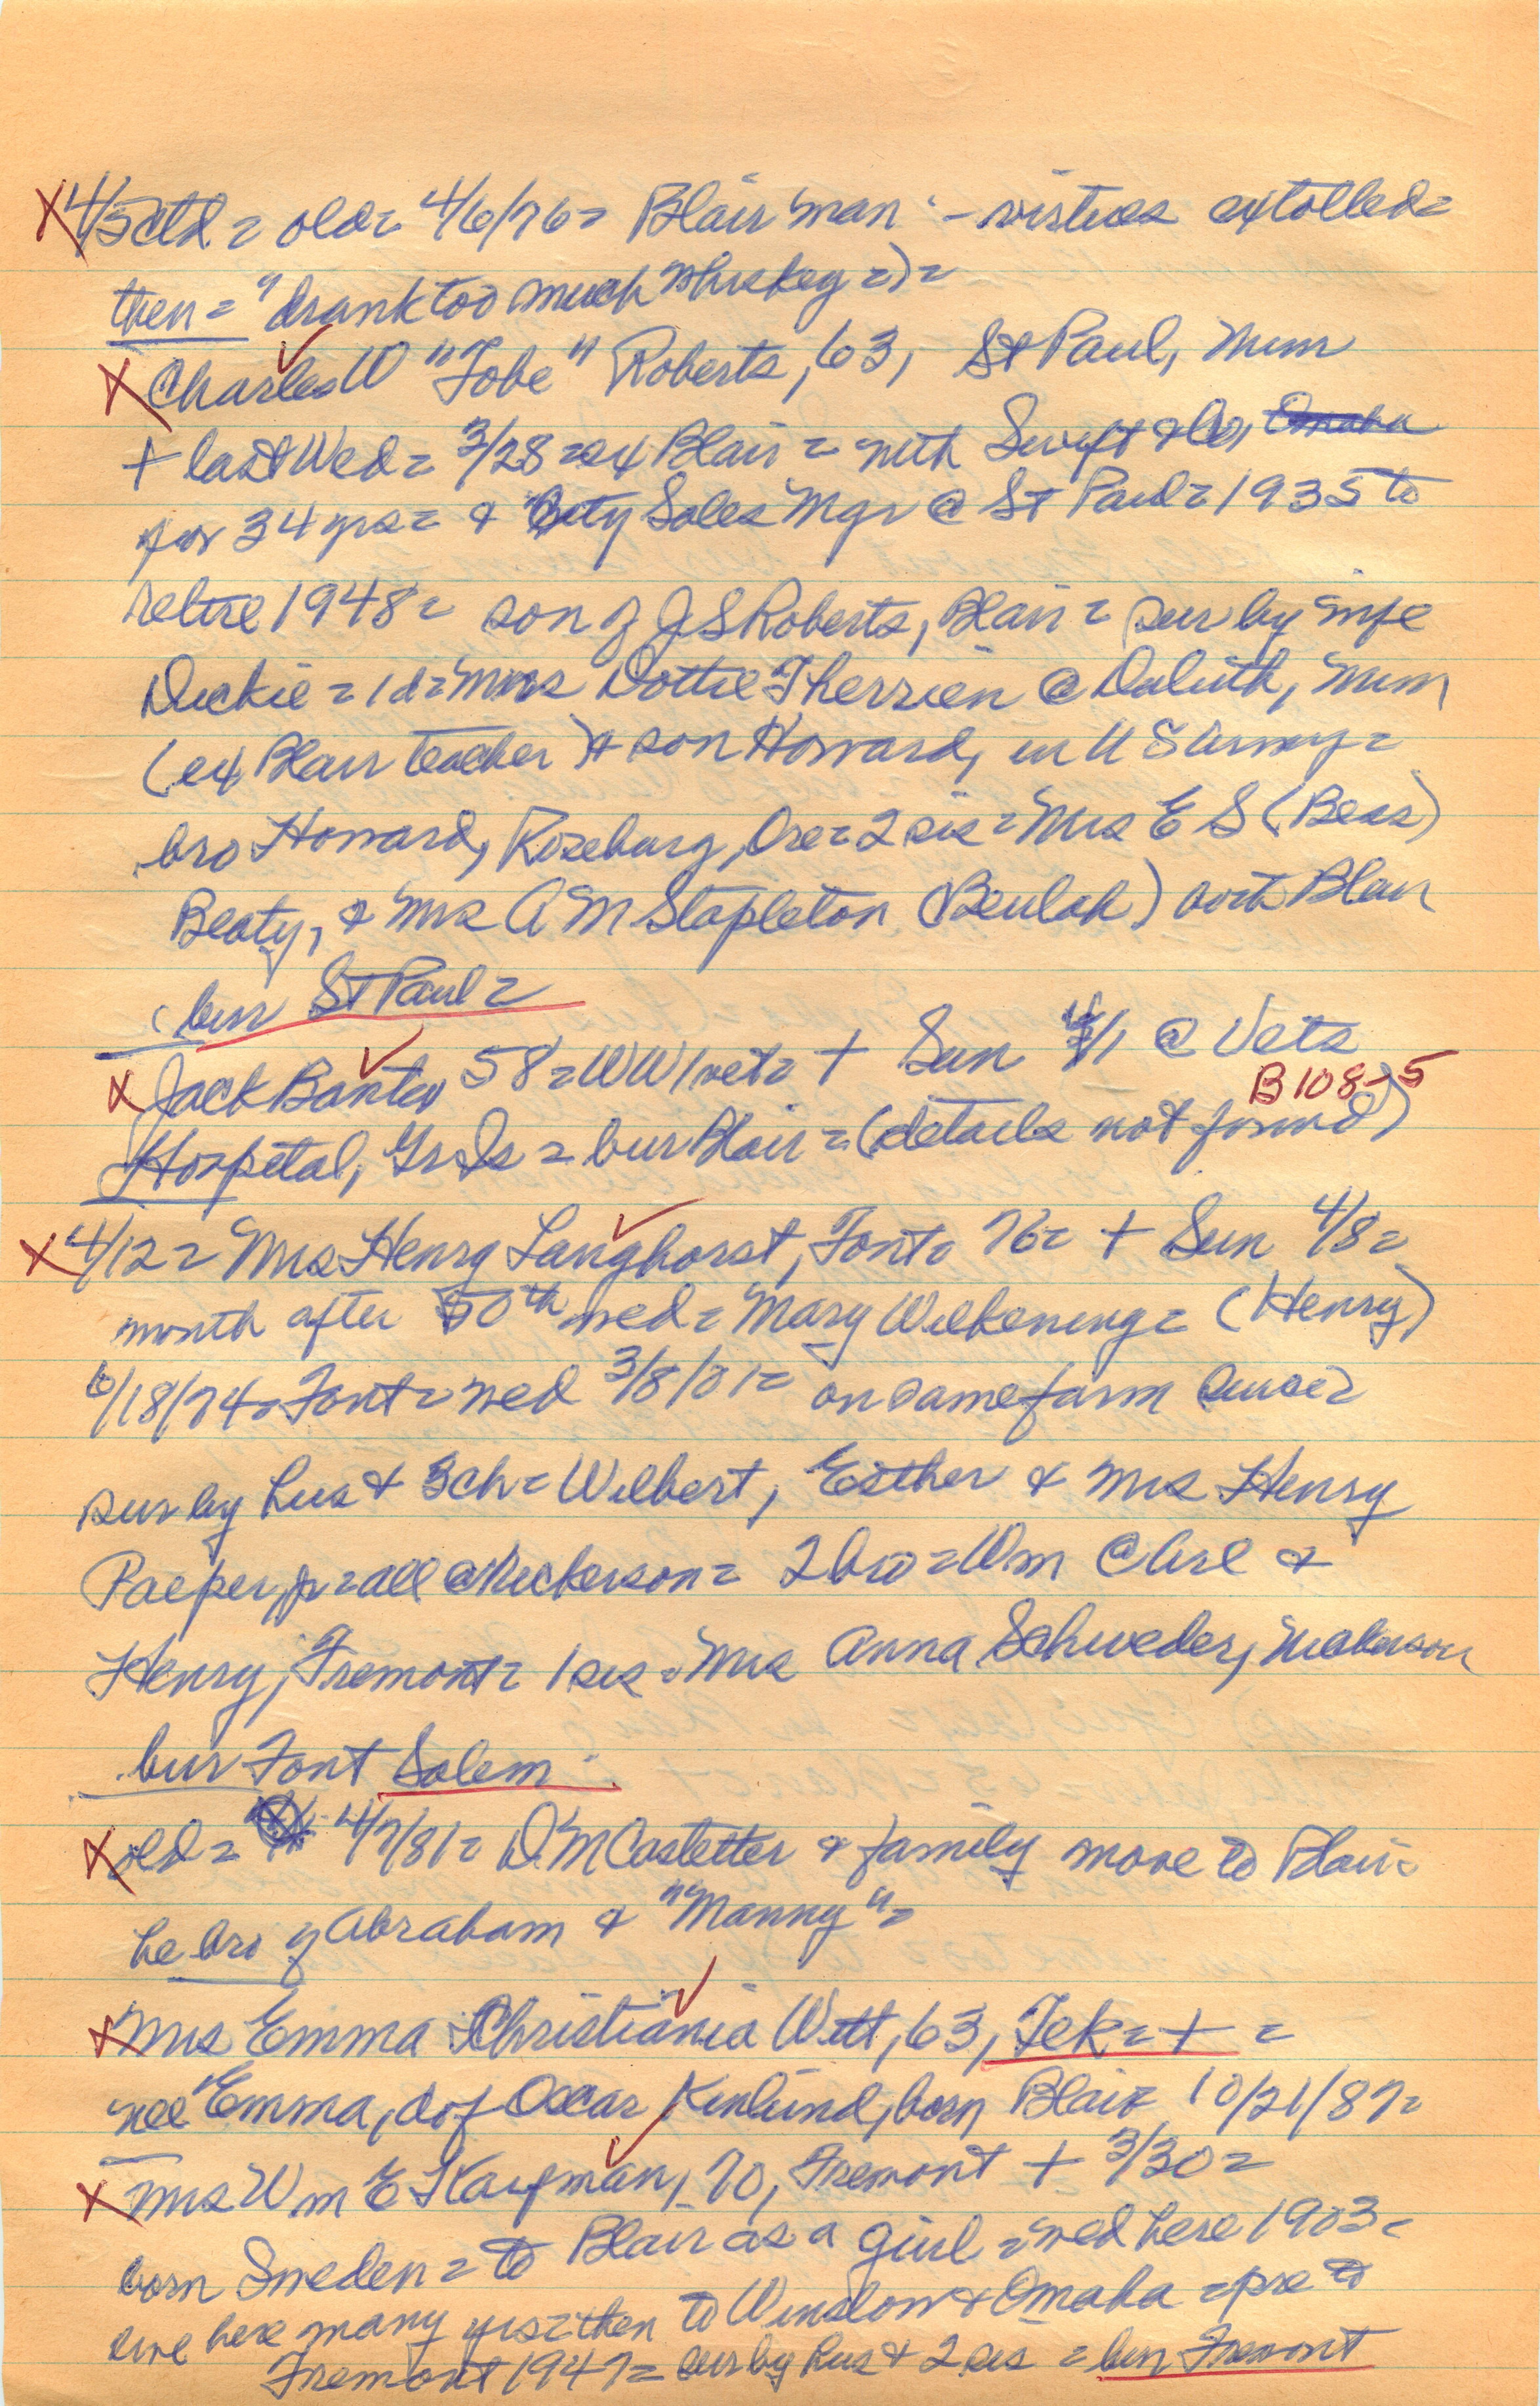 X 4/5 ctd = old = 4/6/76 = Blair man - virtues extolled =
then = "drank too much whiskey =) =
X Charles W "Tobe" Roberts, 63, St Paul, Minn
+ last Wed = 3/28 = ex Blair = with Swift & Co, Omaha
for 34 yrs = & City Sales Mgr @ St Paul = 1935 to
retire 1948 = son of J S Roberts, Blair = sur by wife
Dickie = 1 d = Mrs Dottie Therrien @ Duluth, Minn
(ex Blair teacher) & son Howard, in U S Army =
bro Howard, Roseburg, Ore = 2 sis = Mrs E S (Beas)
Beaty, & Mrs A M Stapleton (Beulah) both Blair
bur St Paul =
X Jack Banter 58 = WW 1 vet = + Sun 4/1 @ Vets
B 108-5
Hospital, Gr Is = bur Blair = (details not found)
X 4/12 = Mrs Henry Langhorst, Font = 76 = + Sun 4/8 =
month after 50th wed = Mary Wilkening = (Henry)
6/18/74 = Font = wed 3/8/01 = on same farm since =
sur by hus & 3 ch = Wilbert, Esther & Mrs Henry
Paeper, jr = all @ Nickerson = 2 bro = Wm @ Arl &
Henry, Fremont = 1 sis = Mrs Anna Schweder, Nickerson
bur Font Salem
X old = 4/7/81 = D. M Castetter & family move to Blair =
he bro of Abraham & "Manny" =
X Mrs Emma Christiania Witt, 63, Tek = + =
nee Emma, d of Oscar Kinlund, born Blair 10/21/87 =
X Mrs Wm E Kaufman, 70, Fremont + 3/30 =
born Sweden = to Blair as a girl = wed here 1903 =
live here many yrs = then to Winslow & Omaha = pre to
Fremont 1947 = sur by hus & 2 sis = bur Fremont